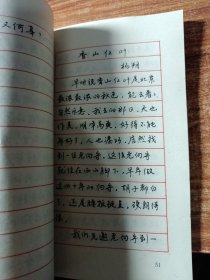 又何尋：
香山红叶
杨朔
早听说香山红叶是北京
最浓最浓的秋色，能去看看，
自然乐意。我去的那日，天也
作美，明净高爽，好得不能
再好了；人也凑巧，居然找
到一位老向导。这位老向导
就住在西山脚下，早年做
过四十年的向导，胡子都白
了，还是腰板挺直，硬朗得
很。
我们先邀老向导到一
51